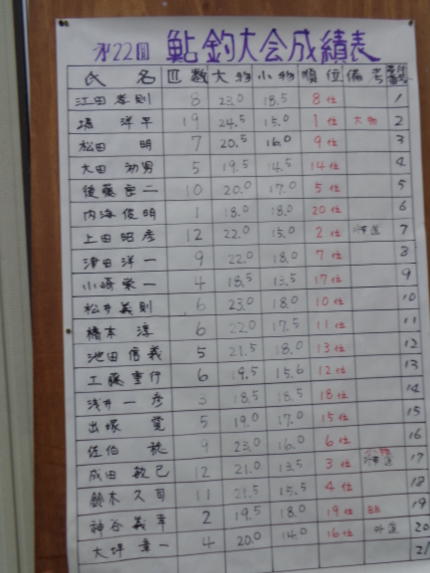 第22回 鮎釣大会成績表
氏 名 匹数 大物 小物 順位 備考
江田 孝則 8 23.0 18.5 8位 1
洋平 19 24.5 15.0 1位 大物 2
松田 明 7 20.5 16.0 9位 3
太田 初男 5 19.5 14.5 14位 4
後藤 二 10 20.0 17.0 5位 5
内海 俊明 1 18.0 18.0 20位 6
上田 昭彦 12 22.0 15.0 2位 7
津田 洋一 9 22.0 18.0 7位 8
小崎 栄一 4 18.5 13.5 17位 9
松井 義則 6 23.0 18.0 10位 10
橋本 淳 6 22.0 17.5 11位 11
池田 信義 5 21.5 18.0 13位 12
工藤 重行 6 19.5 15.6 12位 13
浅井 一彦 3 18.5 18.5 18位 14
出塚 5 19.0 17.0 15位 15
佐伯 9 23.0 16.0 6位 16
成田 敏己 12 21.0 13.5 3位 17
鈴木 久司 11 21.5 15.5 4位 18
神谷 義幸 2 19.5 18.0 19位 19
大坪 幸一 4 20.0 14.0 16位 20
21